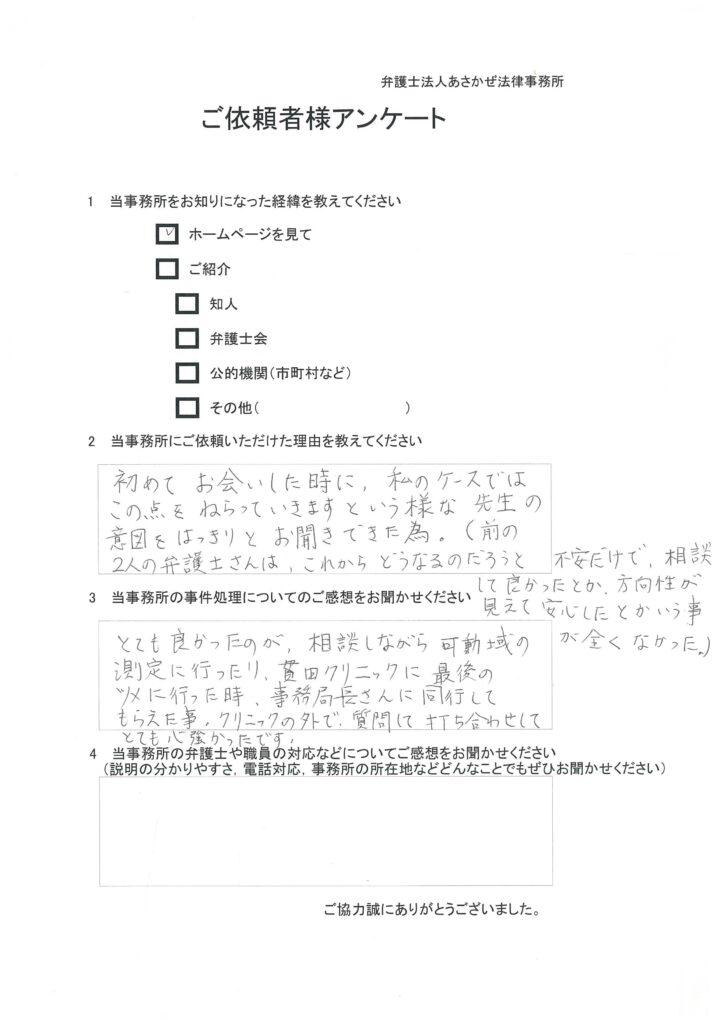 弁護士法人あさかぜ法律事務所
ご依頼者様アンケート
1 当事務所をお知りになった経緯を教えてください
☑ ホームページを見て
□ ご紹介
□ 知人
□ 弁護士会
□ 公的機関(市町村など)
□ その他( )
2 当事務所にご依頼いただけた理由を教えてください
初めて お会いした時に、私のケースでは
この点を ねらっていきます という様な 先生の
意図を はっきりと お聞きできた為。(前の
2人の弁護士さんは、これから どうなるのだろうと
不安だけで、相談
して良かったとか、方向性が
見えて 安心したとかいう事
が全くなかった。)
3 当事務所の事件処理についてのご感想をお聞かせください
とても良かったのが、相談しながら 可動域の
測定に行ったり、田クリニックに 最後の
ツメに行った時、事務局長さんに同行して
もらえた事。クリニックの外で、質問して 打ち合わせして
とても心強かったです。
4 当事務所の弁護士や職員の対応などについてご感想をお聞かせください
(説明の分かりやすさ,電話対応,事務所の所在地などどんなことでもぜひお聞かせください)
ご協力誠にありがとうございました。